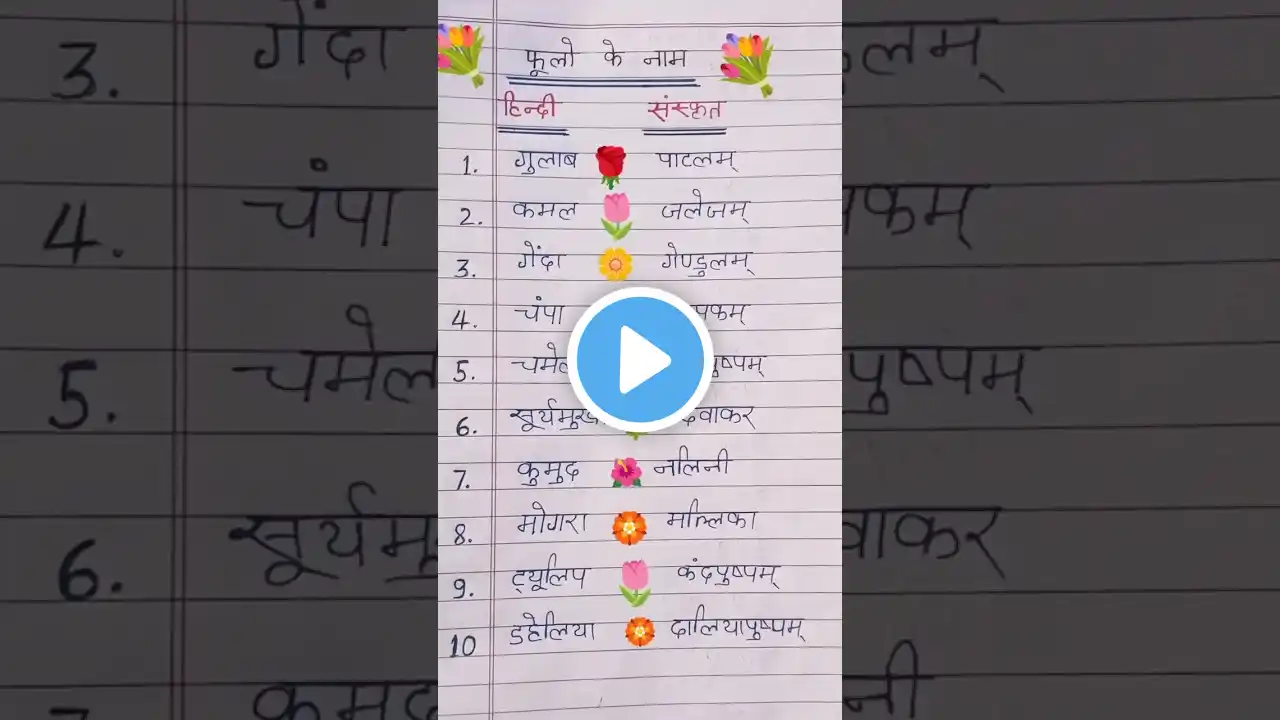 फूलो के नाम
हिन्दी संस्कृत
1. गुलाब पाटलम्
2. कमल जलेजम्
3. गेंदा गेण्डुलम्
4. चंपा पकम्
5. चमेल पुष्पम्
6. सूर्यमुख दिवाकर
7. कुमुद नलिनी
8. मोगरा मल्लिका
9. ट्यूलिप कंदपुष्पम्
10 डहेलिया दालियापुष्पम्